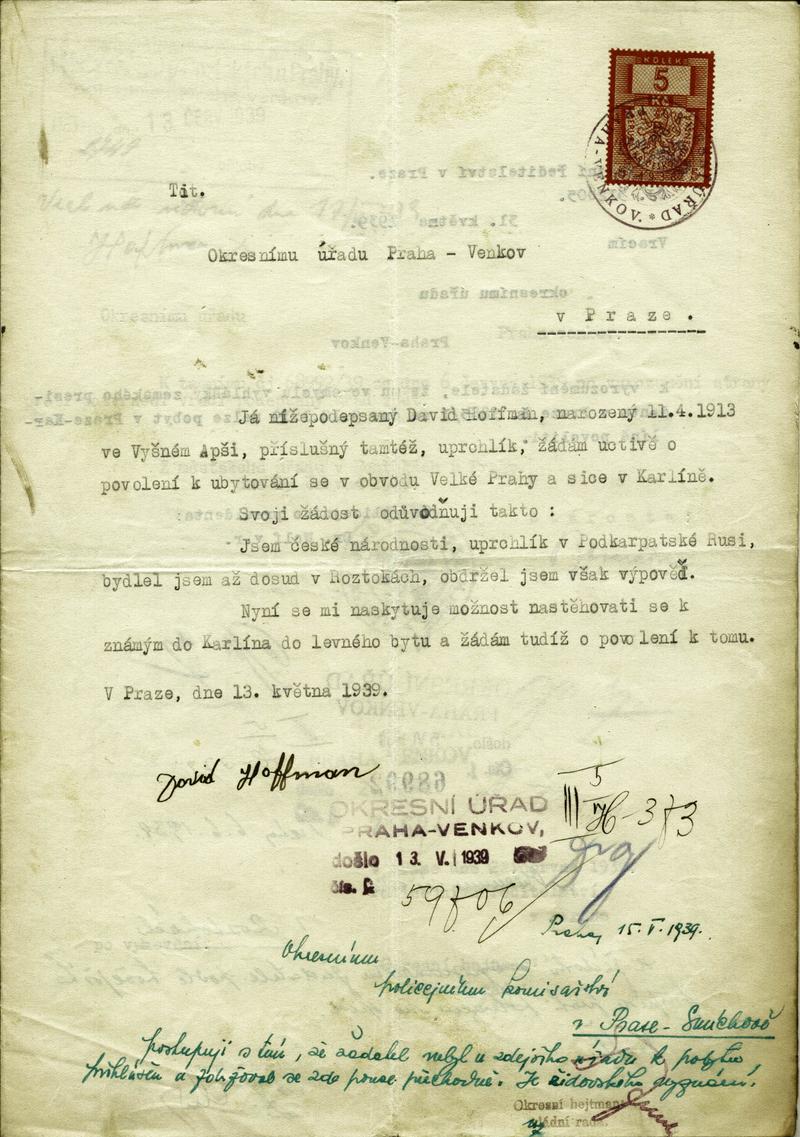 KOLEK
5
Kč
ÚŘAD
VENKOV.
Tit.
Okresnímu úřadu Praha - Venkov
v Praze.
Já nížepodepsaný David Hoffman, narozený 11.4.1913
ve Vyšném Apši, příslušný tamtéž, uprchlík, žádám uctivě o
povolení k ubytování se v obvodu Velké Prahy a sice v Karlíně.
Svoji žádost odůvodňuji takto :
Jsem české národnosti, uprchlík v Podkarpatské Rusi,
bydlel jsem až dosud v Roztokách, obdržel jsem však výpověď.
Nyní se mi naskytuje možnost nastěhovati se k
známým do Karlína do levného bytu a žádám tudíž o povolení k tomu.
V Praze, dne 13. května 1939.
David Hoffman
5
III H-373
OKRESNÍ ÚŘAD
PRAHA-VENKOV,
došlo 13. V. 1939
čís.
59706
Praha, 15.V.1939.
Okresnímu
policejnímu komisařství
v Praze-Smíchově
postupuji s tím, že žadatel nebyl u zdejšího úřadu k pobytu
přihlášen a zdržoval se zde pouze přechodně. Je židovského vyznání.
Okresní hejtman
vládní rada.